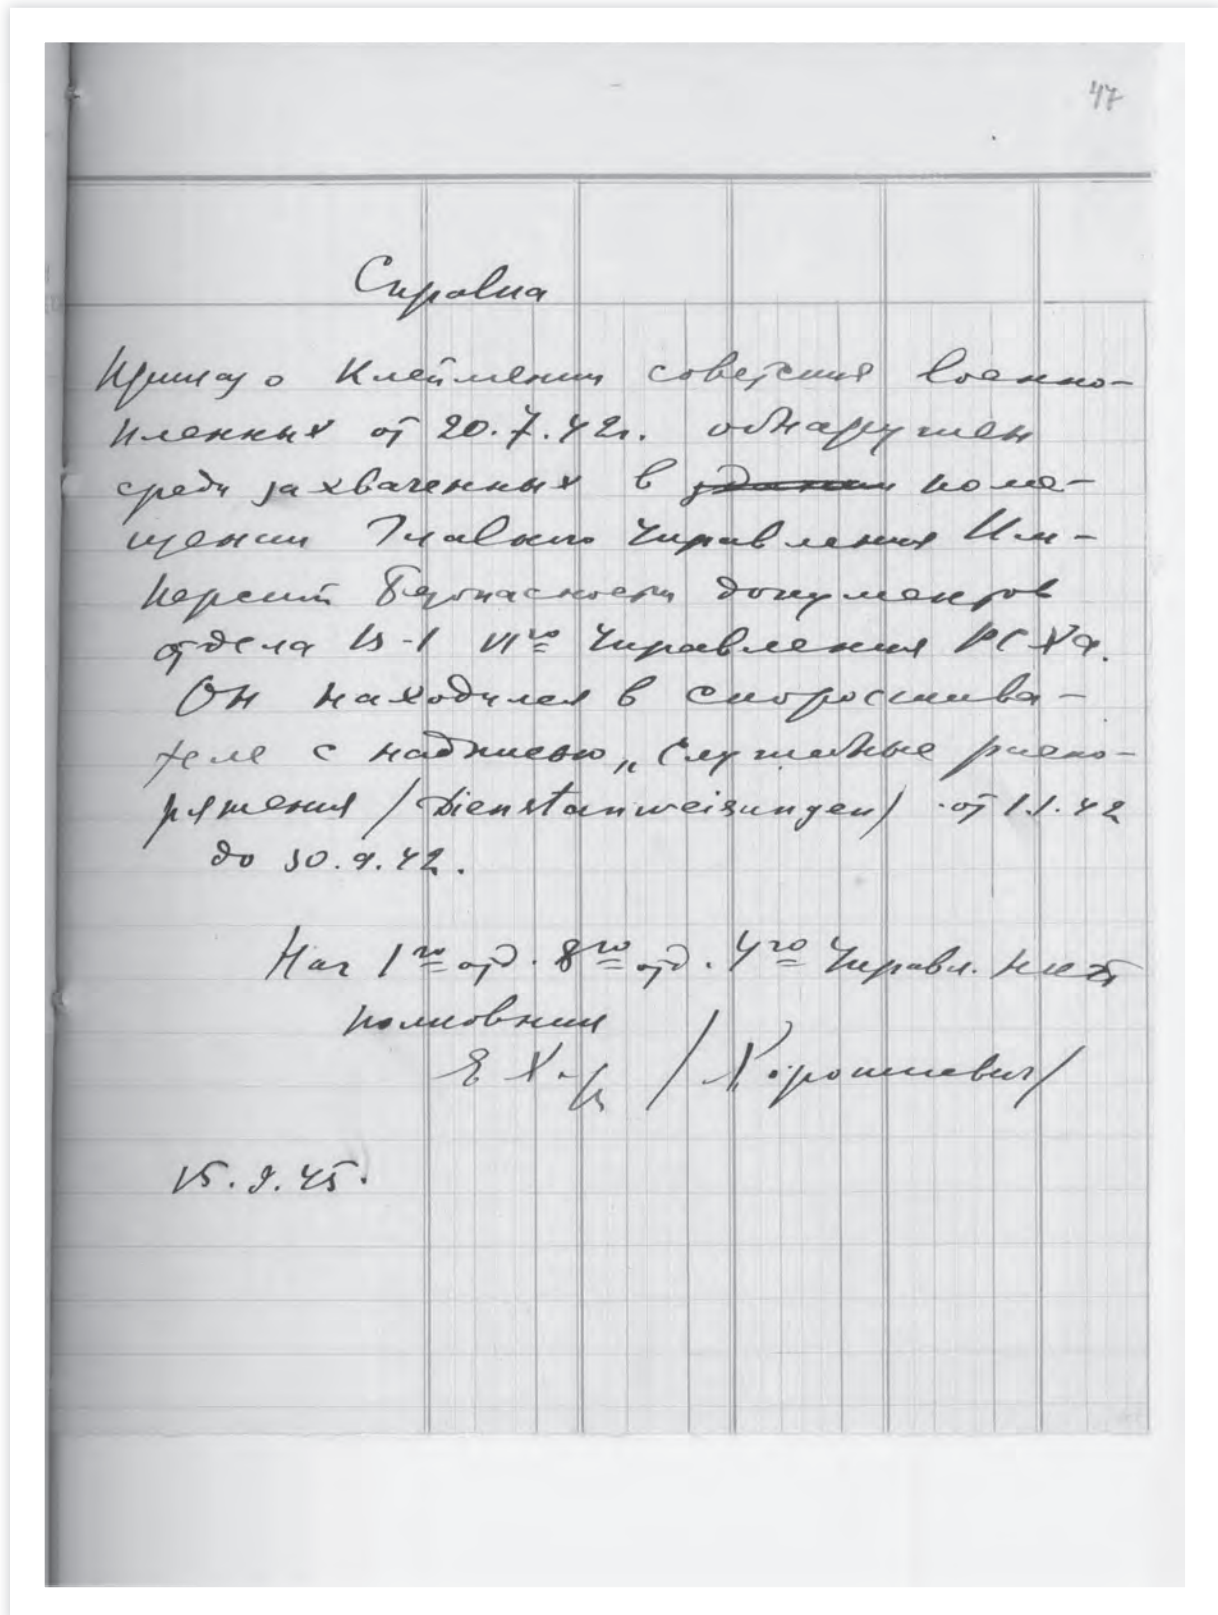 47
Справка
Приказ о клеймении советских военно-
пленных от 20.7.42г. обнаружен
среди захваченных в здании поме-
щении Главного Управления Им-
перской Безопасности документов
отдела IV-1 VIго Управления РСХА.
Он находился в скоросшива-
теле с надписью „Служебные распо-
ряжения /Dienstanweisungen/ от 1.1.42
до 30.9.42.
Нач 1го отд. 8го отд. 4го Управл.
полковник
/Хорошкевич/
15.9.45.